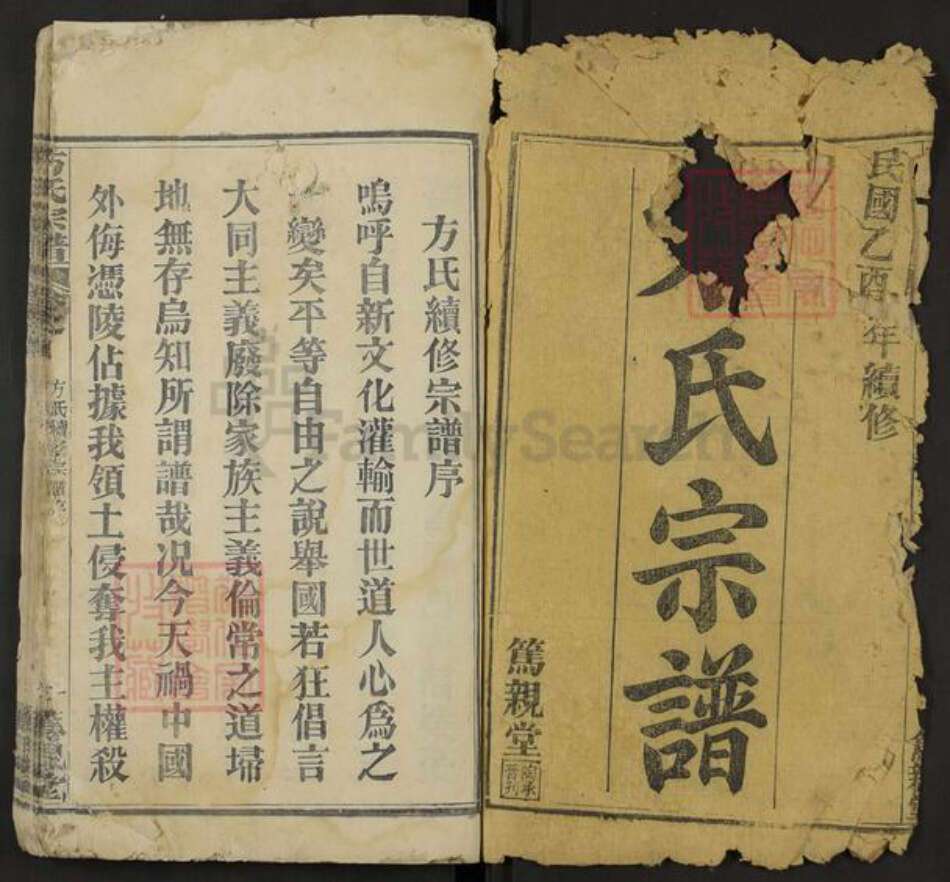 民國乙酉年續修
氏宗譜
篤親堂
方氏續修宗譜序
嗚呼自新文化灌輸而世道人心爲之
一變矣平等自由之說舉國若狂倡言
大同主義廢除家族主義倫常之道埽
地無存烏知所謂譜哉况今天禍中國
外侮憑陵佔據我領土侵奪我主權殺
方氏宗譜
方氏續修宗譜序
FamilySearch